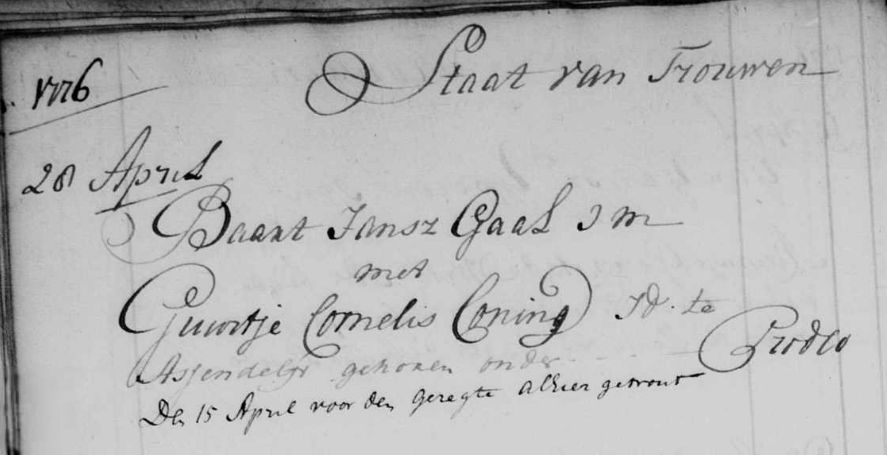 Staat van Trouwen
1776
28 April
Baant Jansz Gaal J M
met
Guurtje Cornelis Coning J d. te
Assendelft gekomen onder Prodeo
Den 15 April voor den geregte alhier getrout